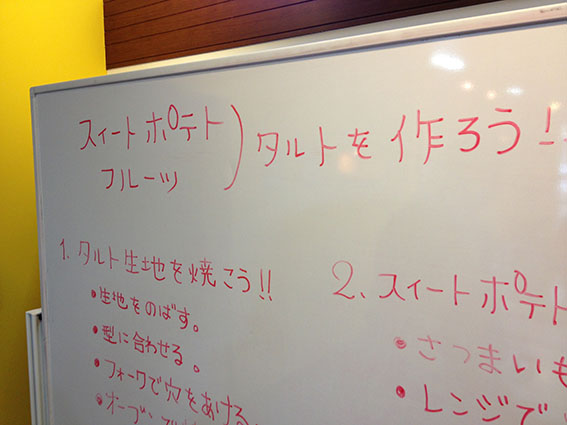 スィートポテト
フルーツ
) タルトを作ろう!!
1. タルト生地を焼こう!!
・生地をのばす。
・型に合わせる。
・フォークで穴をあける
・オーブンで
2. スィートポテト
・さつまいも
・レンジで